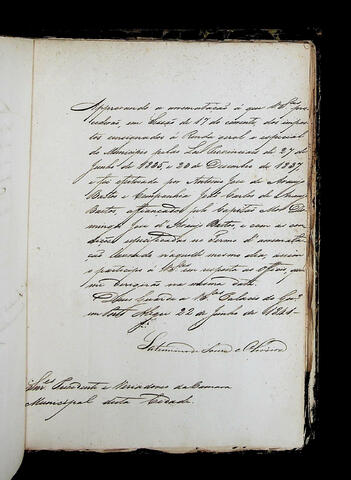 Approvando a arrematação á que V.S.as pro-
cederão, em Sessão de 17 do corrente, dos impos-
tos consignados á Renda geral e especial
do Municipio pelas Leis Provinciaes de 27 de
Junho de 1835, e 20 de Dezembro de 1837,
e foi efectuada por Antonio Jozé de Araujo
Bastos e Companhia, João Carlos de
Bastos, afiançados pelo Capitão Mór Do-
mingos José d'Araujo Bastos, e com as con-
dições especificadas no termo d'arremata-
ção lavrado naquelle mesmo dia; assim
o participo á V.S.as em resposta ao officio, que
me dirigirão na mesma data.
Deos Guarde a V.S.as Palacio do Gov.o
em Porto Alegre 22 de Junho de 1841.
Saturnino de Souza e Oliveira
Snr.es Presidente e Vereadores da Camara
Municipal desta Cidade.